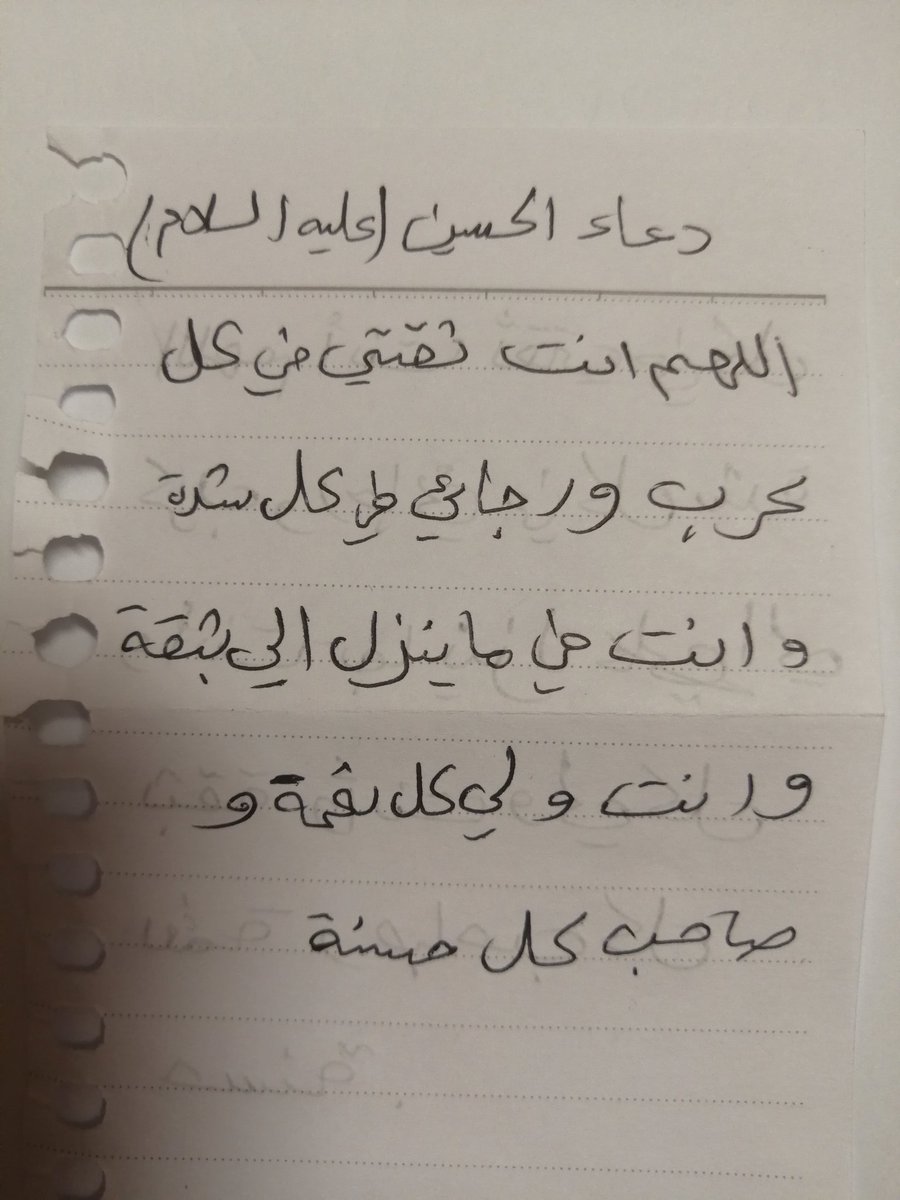 دعاء الحسين (عليه السلام)
اللهم انت ثقتي في كل
كرب ورجائي في كل شدة
وانت لي ما ينزل الي بثقة
وانت ولي كل نعمة و
صاحب كل حسنة